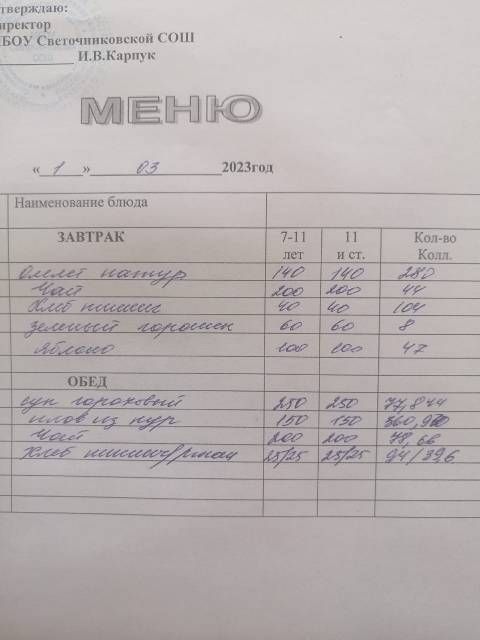 тверждаю:
иректор
БОУ Светочниковской СОШ
И.В.Карпук
МЕНЮ
« 1 » 03 2023год
Наименование блюда
ЗАВТРАК 7-11 лет 11 и ст. Кол-во Колл.
Омлет натур 140 140 280
Чай 200 200 44
Хлеб пшен 40 40 104
Зеленый горошек 60 60 8
Яблоко 100 100 47
ОБЕД
суп гороховый 250 250 77,844
плов из кур 150 150
Чай 200 200 78,66
Хлеб 25/25 25/25